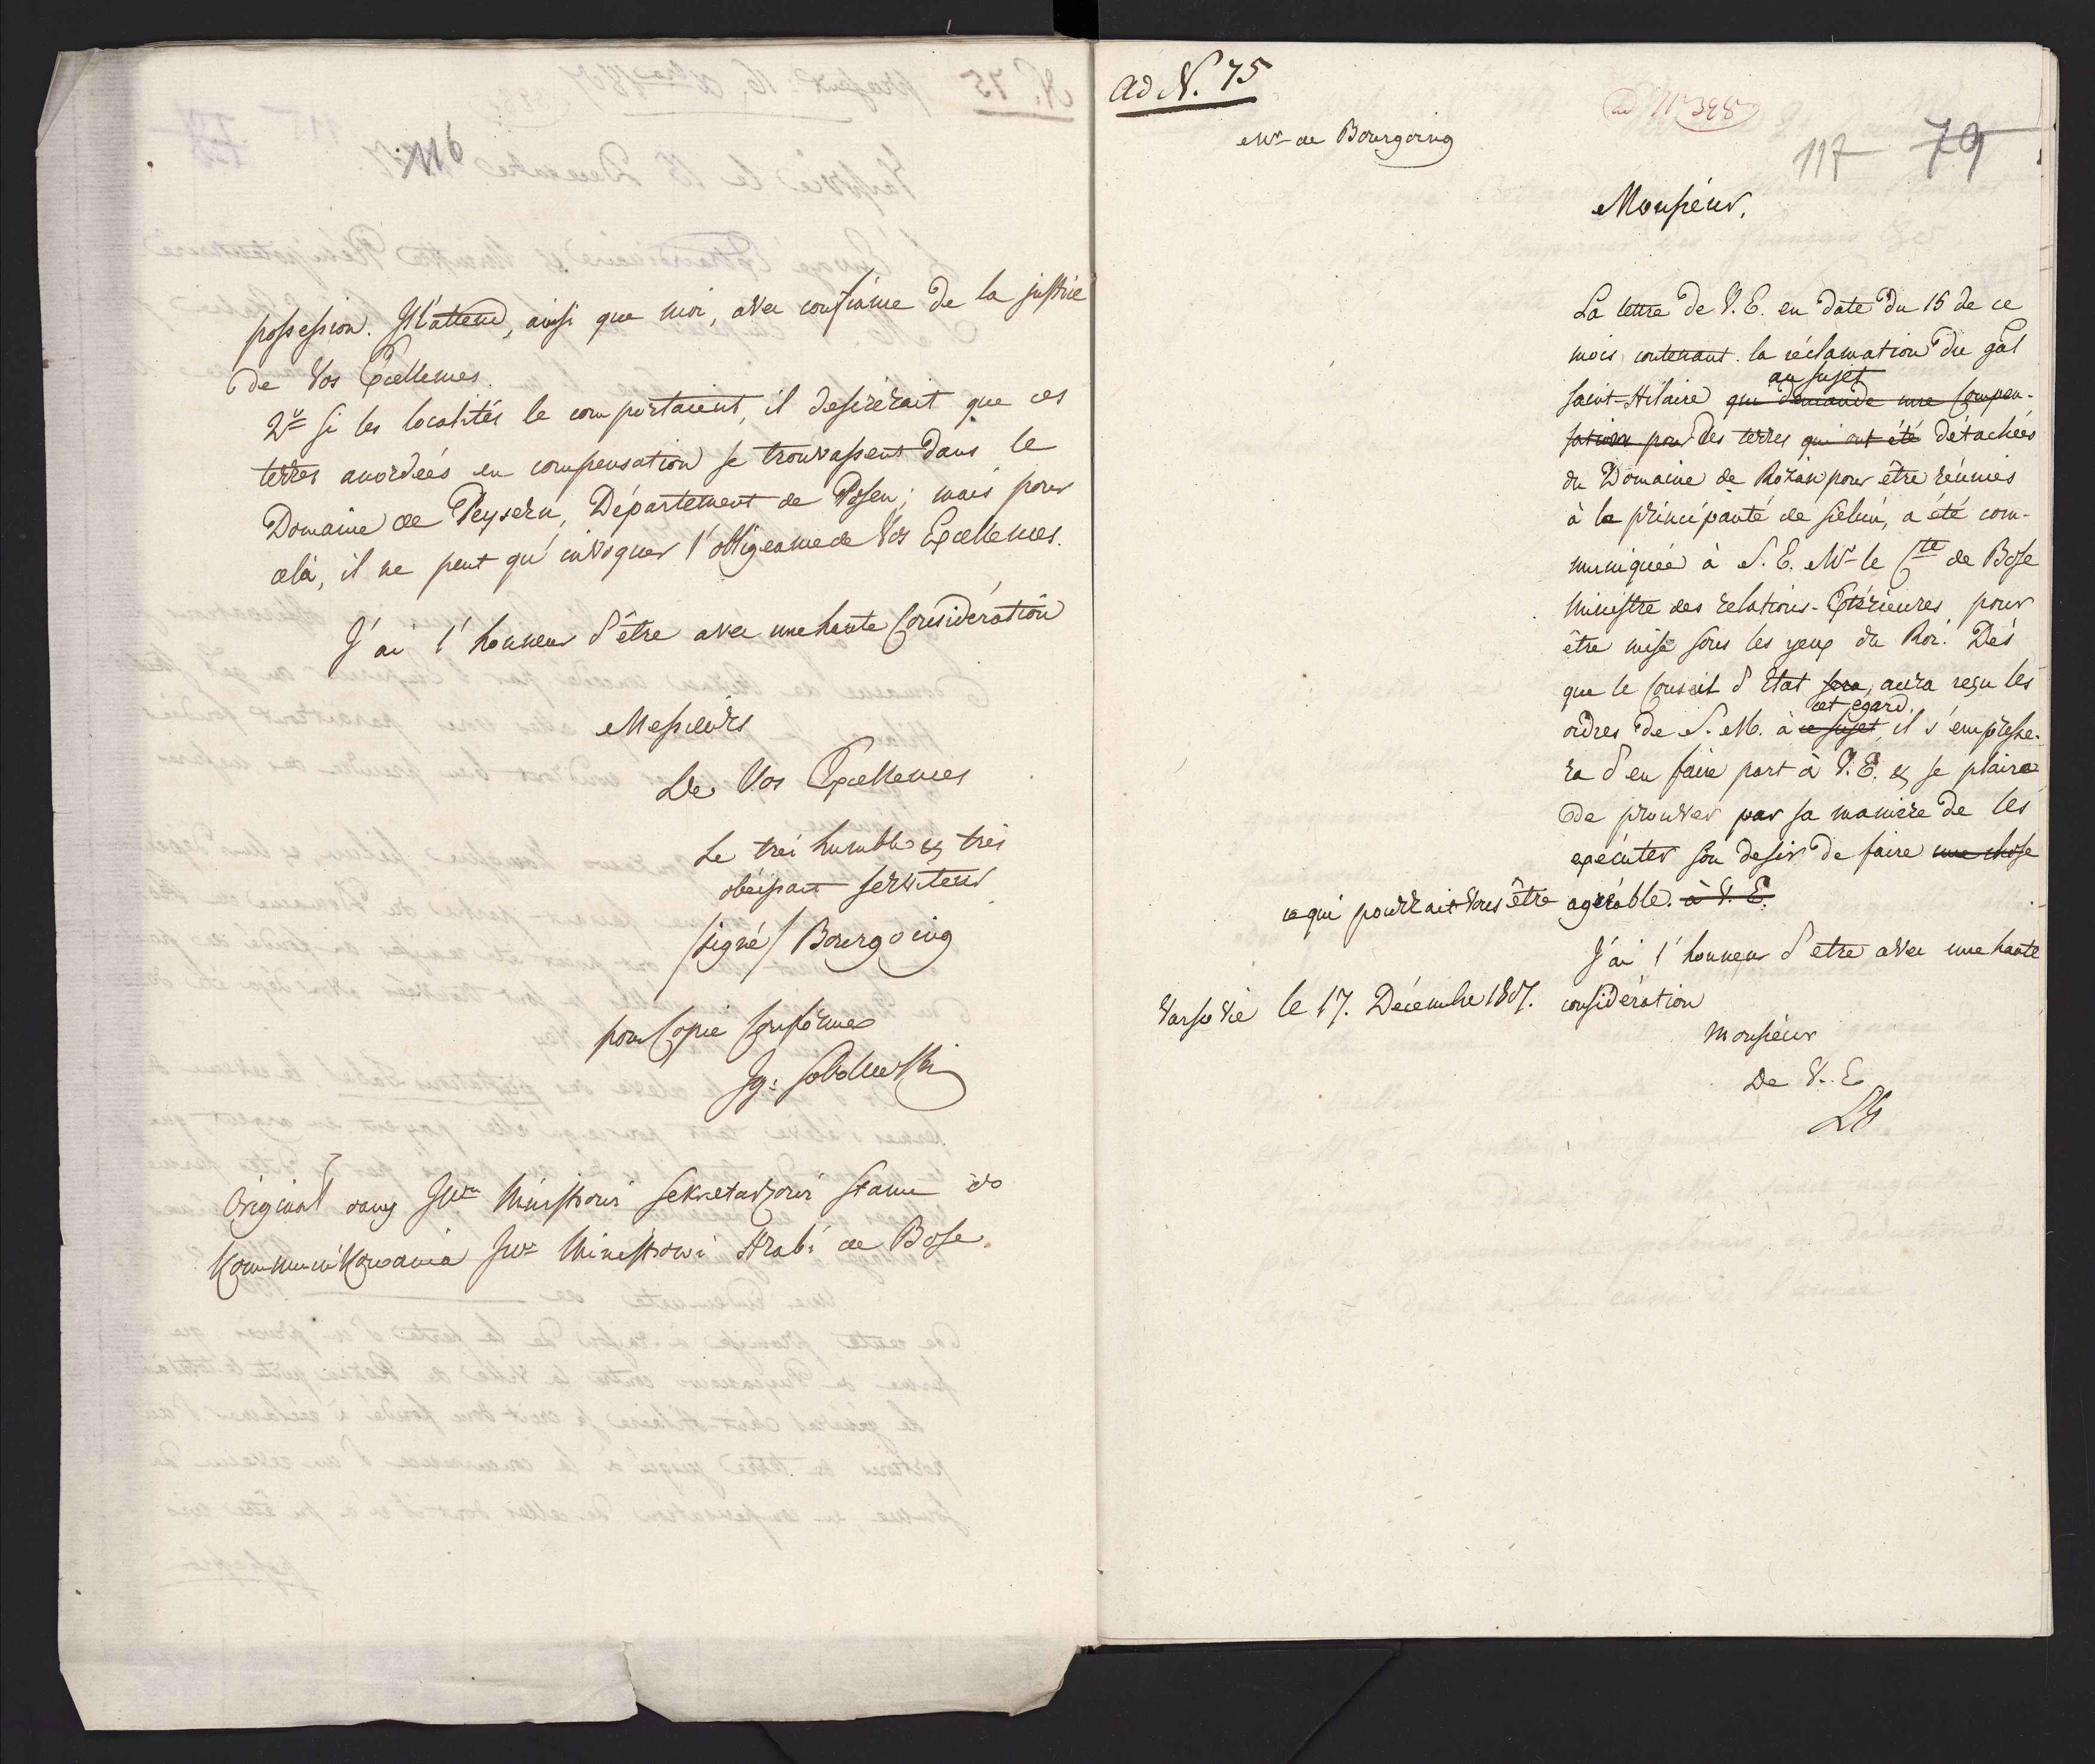 116
possession. Il attend, ainsi que moi, avec confiance de la justice
de Vos Excellences.
2º Si les localités le comportaient, il desirerait que ces
terres accordées en compensation se trouvassent dans le
Domaine de Peysern, Département de Posen; mais pour
cela, il ne peut qu'invoquer l'obligeance de Vos Excellences.
J'ai l'honneur d'être avec une haute Considération
Messieurs
De Vos Excellences
Le très humble & très
obéissant serviteur
/signé/ Bourgoing
pour Copie Conforme
Ig: Sobolewski
Original dany JWu Ministrowi Sekretarzowi Stanu do
Kommunikowania JWu Ministrowi Hrabi de Bose.
ad N. 75
ad N 398
Mr de Bourgoing
117 79
Monsieur,
La lettre de V. E. en date du 15 de ce
mois contenant la réclamation du gâl
au sujet
Saint-Hilaire qui demande une Compen-
sation pour des terres qui ont été détachées
du Domaine de Rożan pour être réunies
à la principauté de Sielun, a été com-
muniquée à S. E. Mr le Cte de Bose
Ministre des relations-Extérieures pour
être mise sous les yeux du Roi. Dès
que le Conseil d'Etat sera, aura reçu les
cet egard
ordres de S. M. à ce sujet, il s'empresse-
ra d'en faire part à V. E. & se plaira
de prouver par sa manière de les
exécuter son desir de faire une chose
ce qui pourrait vous être agréable. à V. E.
J'ai l'honneur d'etre avec une haute
Varsovie le 17. Décembre 1807. considération
Monsieur
De V. E